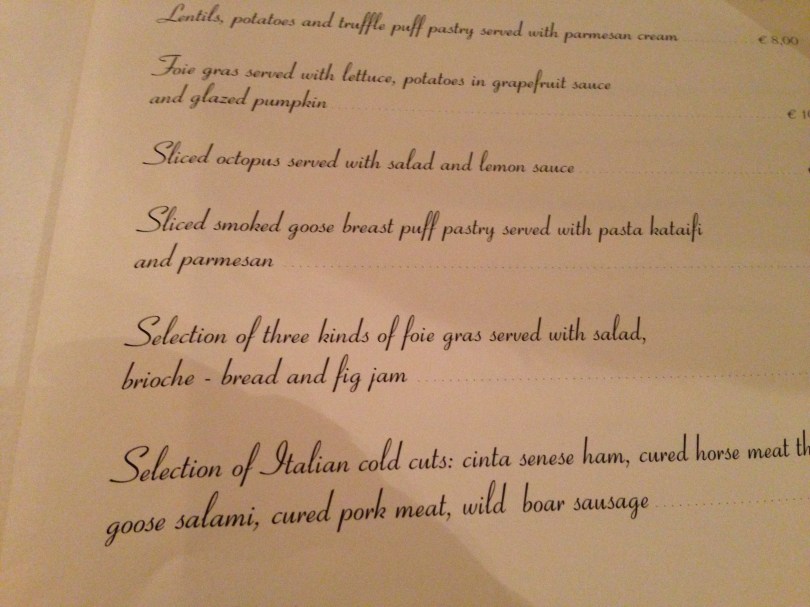 Lentils, potatoes and truffle puff pastry served with parmesan cream € 8,00
Foie gras served with lettuce, potatoes in grapefruit sauce
and glazed pumpkin €
Sliced octopus served with salad and lemon sauce
Sliced smoked goose breast puff pastry served with pasta kataifi
and parmesan
Selection of three kinds of foie gras served with salad,
brioche - bread and fig jam
Selection of Italian cold cuts: cinta senese ham, cured horse meat
goose salami, cured pork meat, wild boar sausage